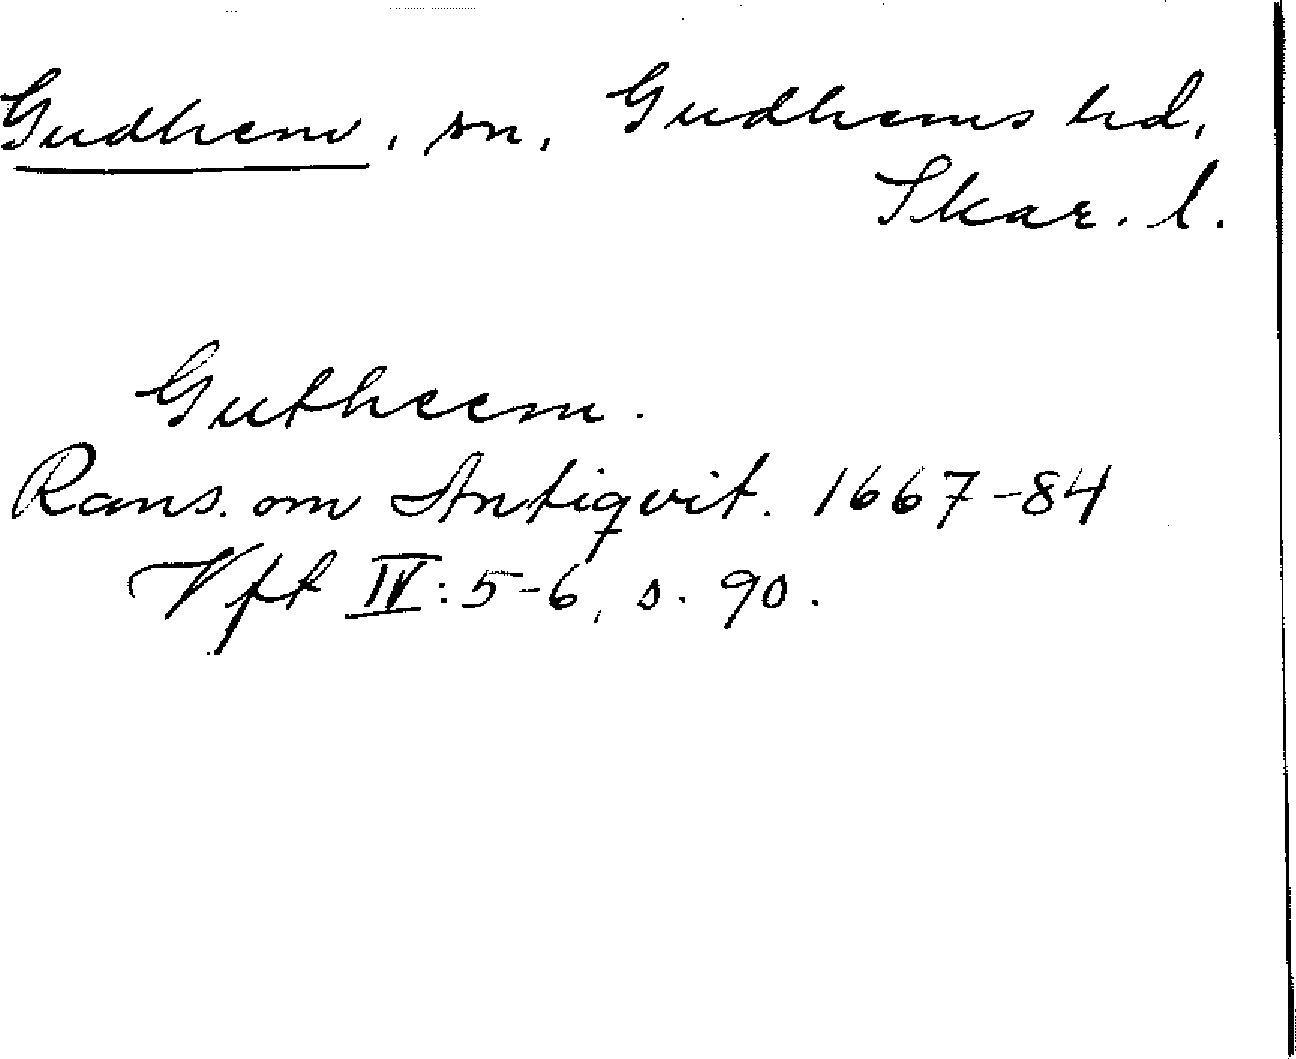 Gudhem, sn, Gudhems hd,
Skar. l.
Gutheem.
Rans. om Antiqvit. 1667-84
Vft IV: 5-6, s. 90.